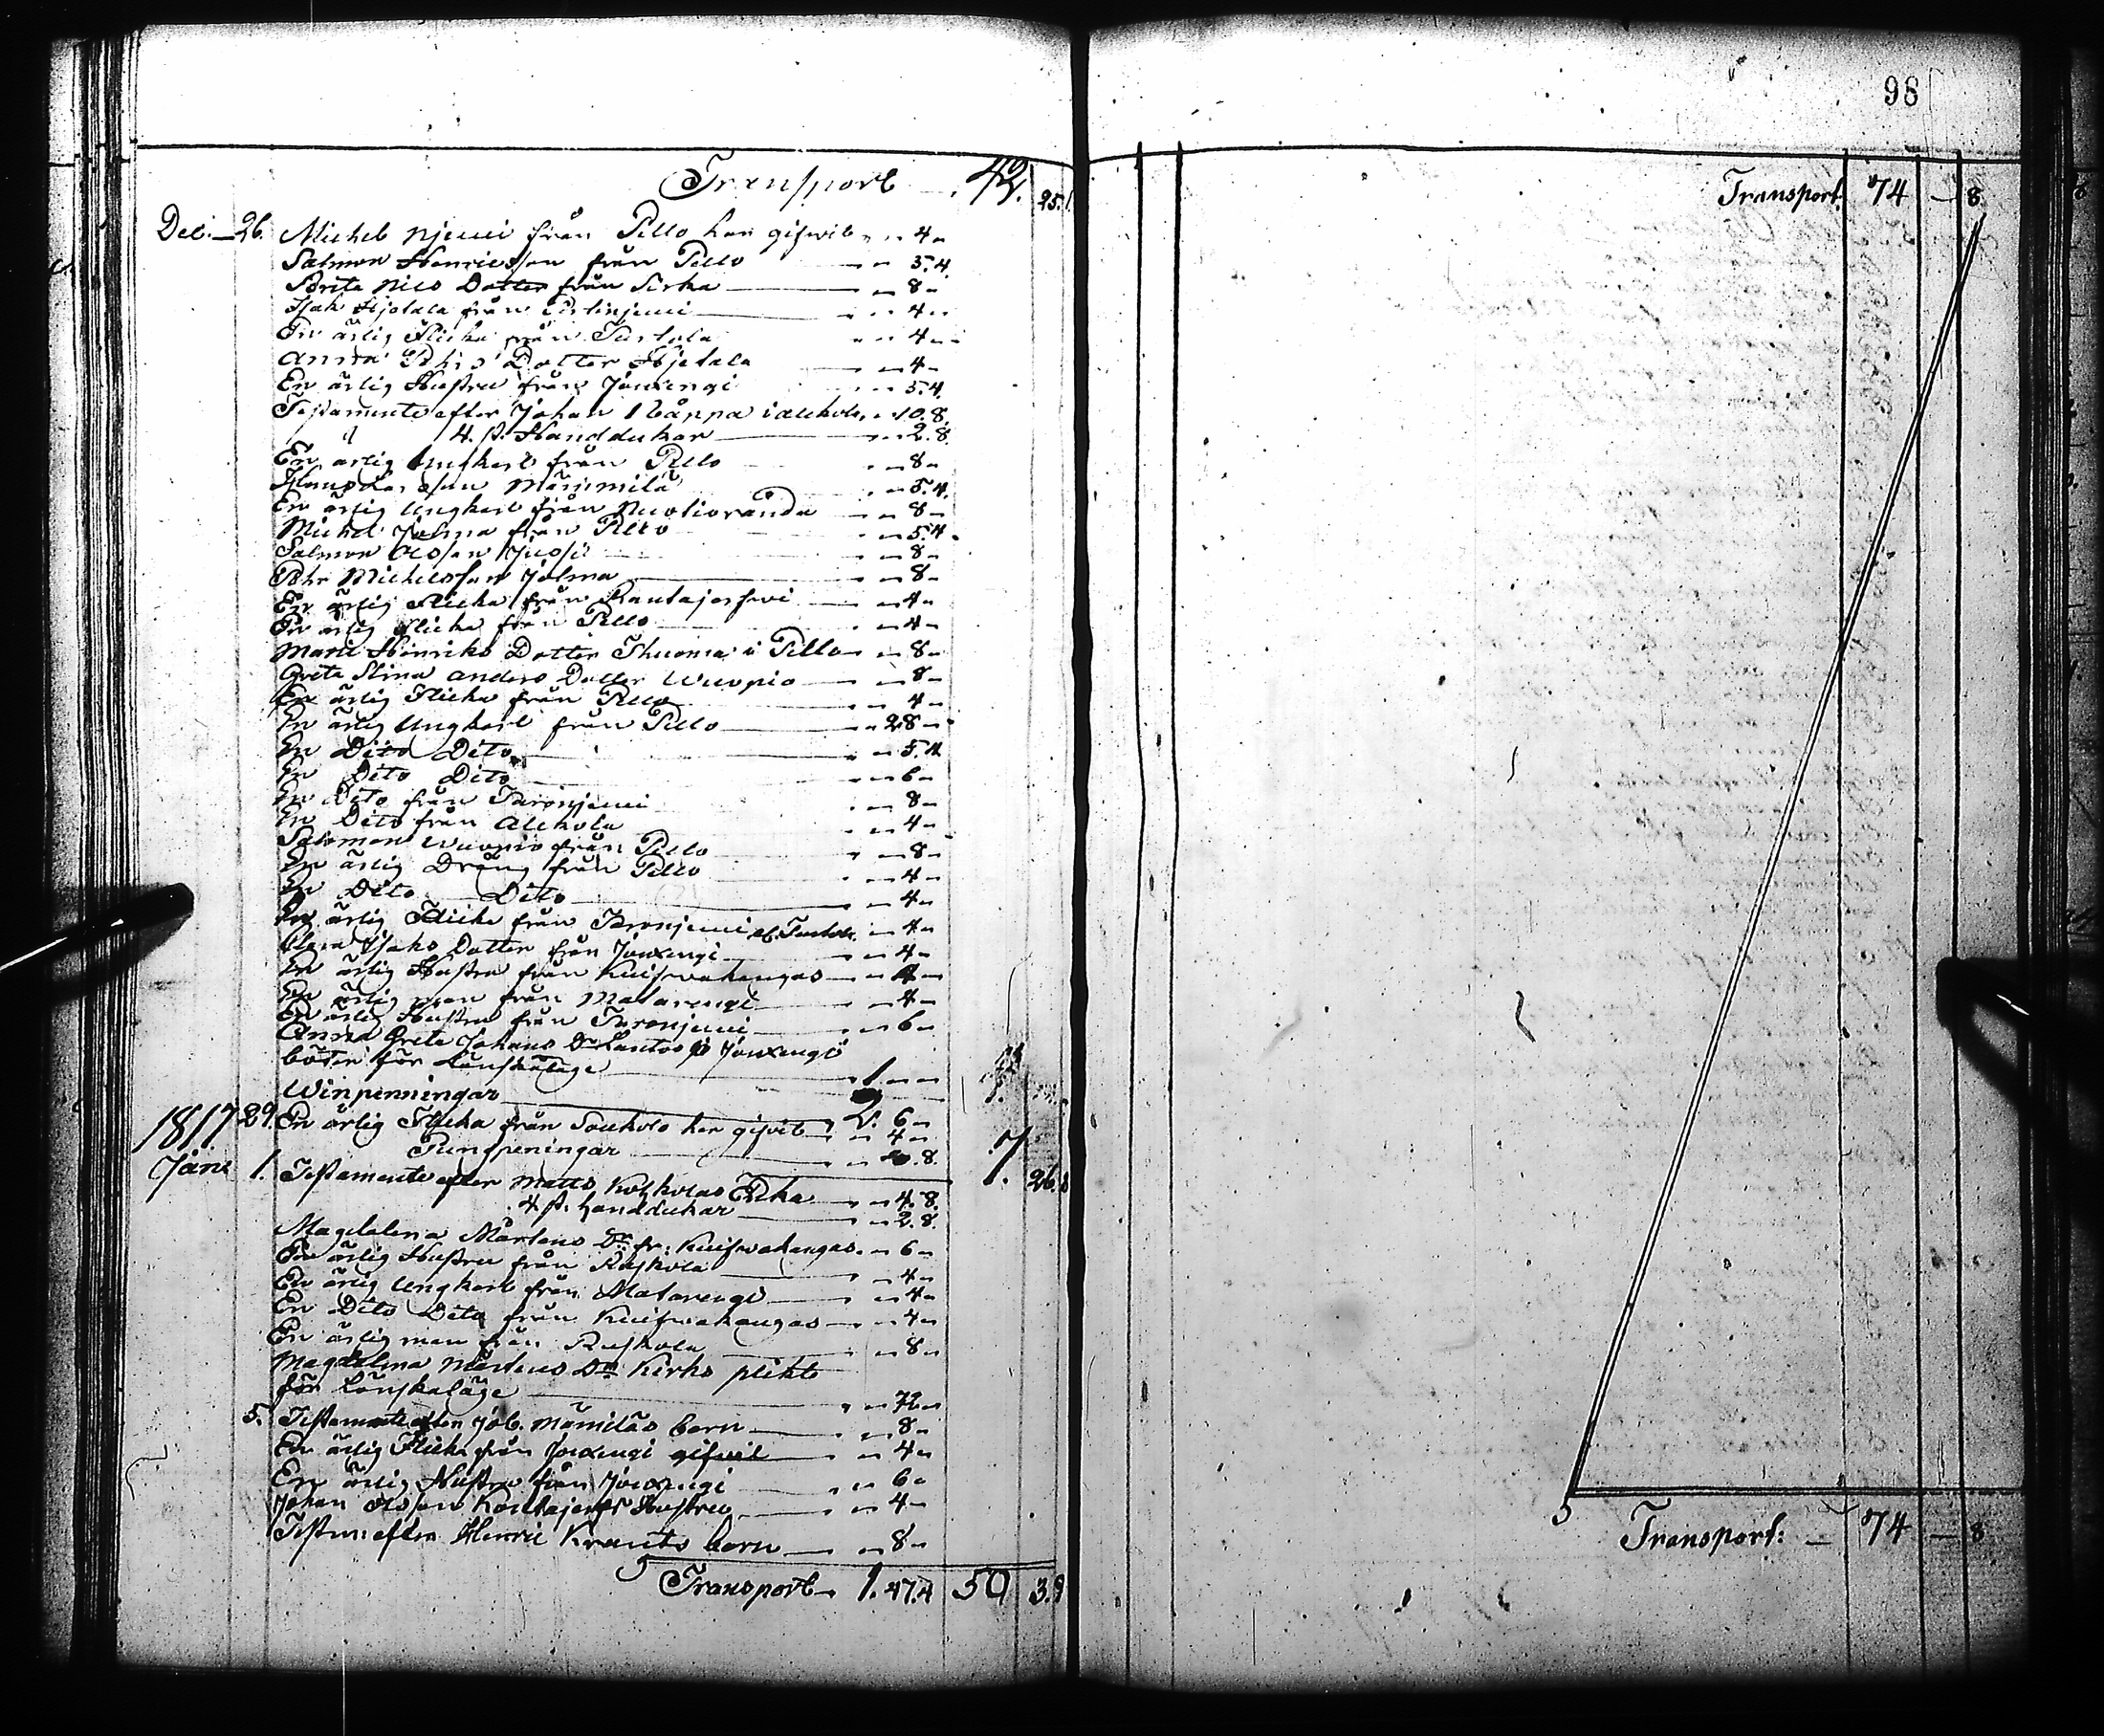 Transport 42. 25.1.
Dec: 26. Michel Njemi från Pello har gifwit 4
Salmon Henricsson från Pello 5.4.
Brita Nils Dotter från Sirka 8
Isak Hjetala från Turtinjemi 4
En ärlig Flicka från Turtola 4
Anna Pehrs Dotter Hjetala 4
En ärlig Hustru från Jouxengi 5.4.
Testamente efter Johan i Alchola 10.8.
4. st. Handdukar 2.8.
En ärlig Ungkarl från Pello 8
Olsson Männimitä 5.4.
En ärlig Ungkarl från Nuolioranda 8
Michel Jolma från Pello 5.4.
Salmon Olsson Juosi 8
Pehr Michelsson Jolma 8
En ärlig Flicka från Rautajerfwi 4
En ärlig Flicka från Pello 4
Maria Henriks Dotter Thuoma i Pello 8
Greta Stina Anders Dotter Wuopio 8
En ärlig Flicka från Pello 4
En ärlig Ungkarl från Pello 28
En Dito Dito 5.4
En Dito Dito 6
En Dito från Turonjemi 8
En Dito från Alchola 4
Salomon Wuopio från Pello 8
En ärlig Dräng från Pello 4
En Dito Dito 4
En ärlig Flicka från Turonjemi 4
Isaks Dotter från Jouxengi 4
En ärlig Hustru från Kuifwakangas 4
En ärlig man från Matarengi 4
En ärlig Hustru från Turonjemi 6
Anna Greta Johans Dr Lantos från Jouxengi
böter för Lönskaläge 1
Winpenningar 2. 6
1817 29. En ärlig Flicka från har gifvit 4
Pungpeningar 8. 7
Janr 1. Testamente efter Matts Kolkolas Enka 4.8. 1. 26.
4 st. handdukar 2.8.
Magdalena Mårtens Dr fr: Kuifwakangas 6
En ärlig Hustru från Ruskola 4
En ärlig Ungkarl från Matarengi 4
En Dito Dito från Kuifwakangas 4
En ärlig man från Ruskola 8
Magdalena Mårtens Dr Kirko plikt
för Lönskaläge 72
5. Testamente efter Joh. Mämiläs barn 8
En ärlig Flicka från Jouxengi gifwit 4
En ärlig Hustru från Jouxengi 6
Johan Olsson Rautajerfs Hustru 4
Testm: efter Henric Krants barn 8
Transport 1.47.4 50 3.9
98
Transport: 74 — 8.
Transport: — 74 — 8